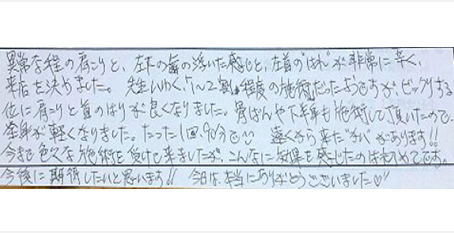 異常な程の肩こりと、左下の歯の浮いた感じと、左首の"はれ"が非常に辛く、
来店を決めました。先生いわく、「1〜2割程度の施術」だったようですが、ビックリする
位に肩こりと首のはりが良くなりました。骨ばんや下半身も施術して頂いたので、
全身が軽くなりました。たった1回90分で 遠くから来た"かい"があります!!
今まで色々な施術を受けて来ましたが、こんなに効果を感じたのははじめてです。
今後に期待したいと思います!! 今日は、本当にありがとうございました♡"